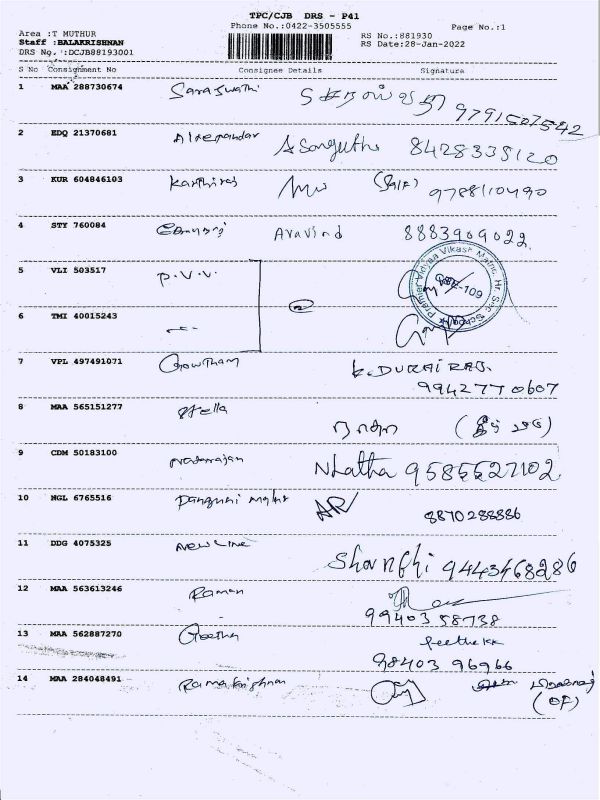 TPC/CJB DRS - P41
Phone No.:0422-3505555
Page No.:1
Area :T MUTHUR
Staff :BALAKRISHNAN
DRS No. :DCJB88193001
RS No.:881930
RS Date:28-Jan-2022
S No Consignment No Consignee Details Signature
1 MAA 288730674 Saraswathi 9791507542
2 EDQ 21370681 8428335120
3 KUR 604846103 Karthiraj (Self) 9788110490
4 STY 760084 Aravind 8883909022
5 VLI 503517 P.V.V.
6 TMI 40015243
7 VPL 497491071 Gowtham K. DURAI RAJ.
9942770607
8 MAA 565151277 Stella
9 CDM 50183100 Natarajan Nlatha 9585527102
10 NGL 6765516 8870288886
11 DDG 4075325 New Line Shanthi 9443468286
12 MAA 563613246 Raman
9940358738
13 MAA 562887270 Geetha
98403 96966
14 MAA 284048491 Ramakrishnan